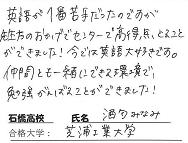 英語が1番苦手だったのですが
先生方のおかげでセンターで高得点とること
ができました！今では英語大好きです。
仲間とも一緒にできる環境で
勉強がんばることができました！
石橋高校 氏名 酒匂みなみ
合格大学： 芝浦工業大学